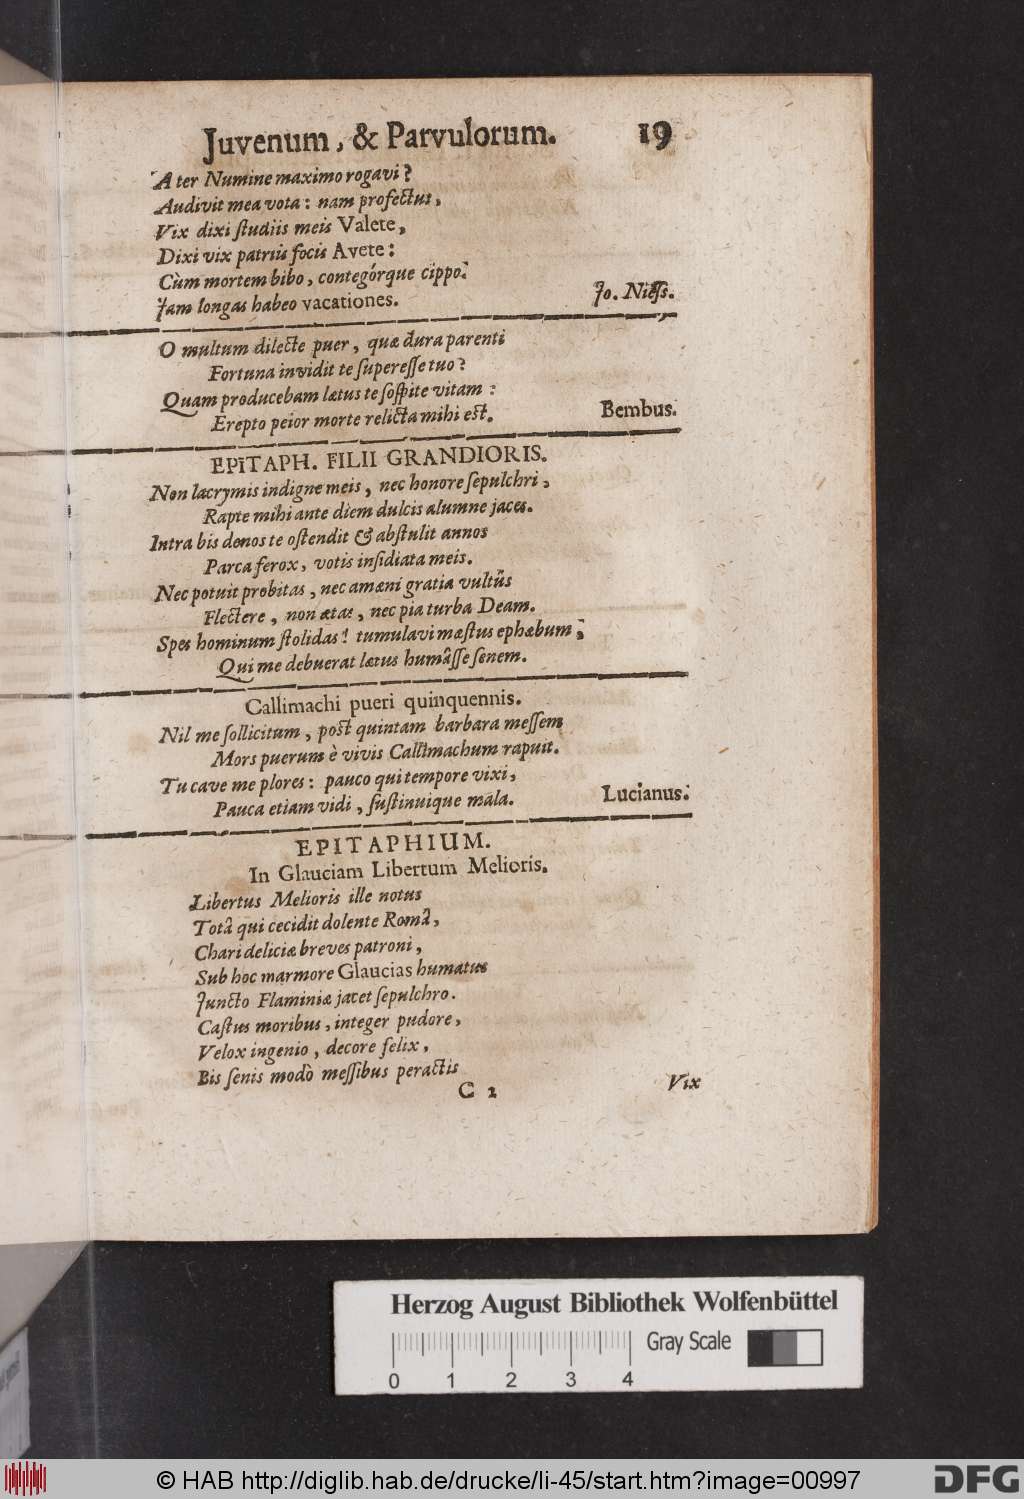 Juvenum, & Parvulorum. 19
A ter Numine maximo rogavi?
Audivit mea vota: nam profectus,
Vix dixi ſtudiis meis Valete,
Dixi vix patriis focis Avete:
Cùm mortem bibo, contegórque cippo.
Jam longas habeo vacationes. Jo. Nieſs.
O multum dilecte puer, quæ dura parenti
Fortuna invidit te ſupereſſe tuo?
Quam producebam lætus te ſoſpite vitam:
Erepto peior morte relicta mihi est. Bembus.
EPITAPH. FILII GRANDIORIS.
Non lacrymis indigne meis, nec honore ſepulchri,
Rapte mihi ante diem dulcis alumne jaces.
Intra bis denos te oſtendit & abſtulit annos
Parca ferox, votis inſidiata meis.
Nec potuit probitas, nec amæni gratia vultûs
Flectere, non ætas, nec pia turba Deam.
Spes hominum ſtolidas! tumulavi mæſtus ephæbum;
Qui me debuerat lætus humâſſe ſenem.
Callimachi pueri quinquennis.
Nil me ſollicitum, post quintam barbara meſſem
Mors puerum è vivis Callimachum rapuit.
Tu cave me plores: pauco qui tempore vixi,
Pauca etiam vidi, ſuſtinuique mala. Lucianus.
EPITAPHIUM.
In Glauciam Libertum Melioris.
Libertus Melioris ille notus
Totâ qui cecidit dolente Româ,
Chari deliciæ breves patroni,
Sub hoc marmore Glaucias humatus
Juncto Flaminiæ jacet ſepulchro.
Caſtus moribus, integer pudore,
Velox ingenio, decore felix,
Bis ſenis modò meſſibus peractis
C 2 Vix
Herzog August Bibliothek Wolfenbüttel
Gray Scale
0 1 2 3 4
© HAB http://diglib.hab.de/drucke/li-45/start.htm?image=00997
DFG